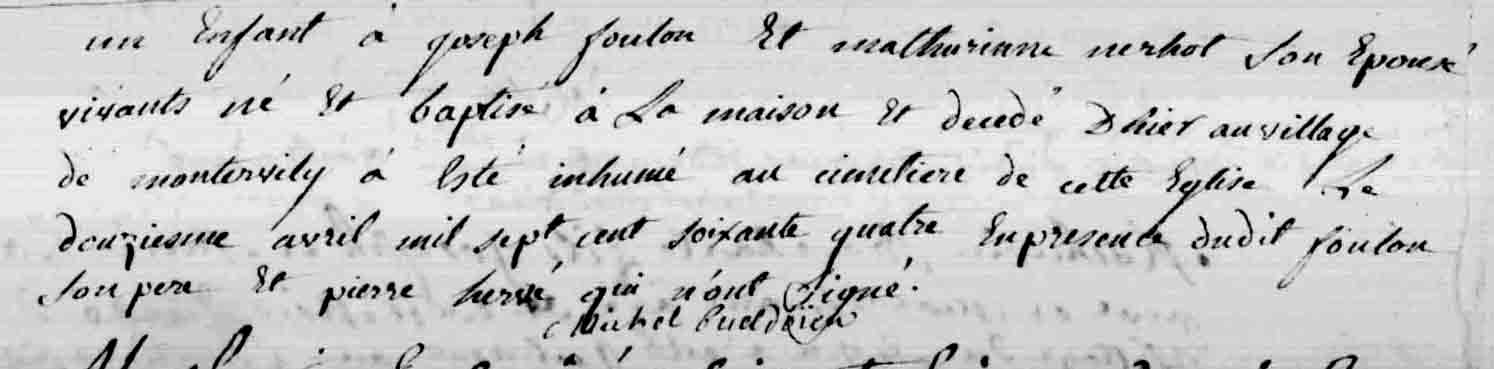 un Enfant à joseph foulon Et mathurinne nerhot son Epouse
vivants né Et baptisé à La maison Et decedé Dhier au village
de montervily à Esté inhumé au cimetiere de cette Eglise Le
douziesme avril mil sept cent soixante quatre En presence dudit foulon
son pere Et pierre hervé qui n'ont signé.
Michel